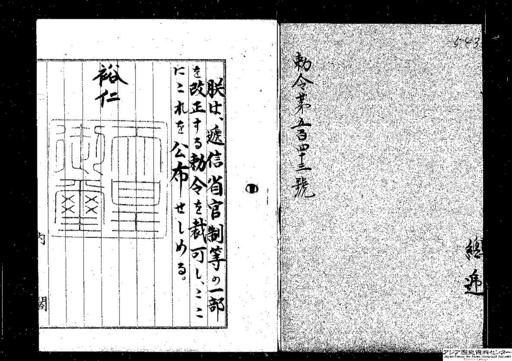 543
勅令第五百四十三號
總逓
朕は、遞信省官制等の一部
を改正する勅令を裁可し、ここ
にこれを公布せしめる。
裕仁
天皇
御璽
内閣
アジア歴史資料センター